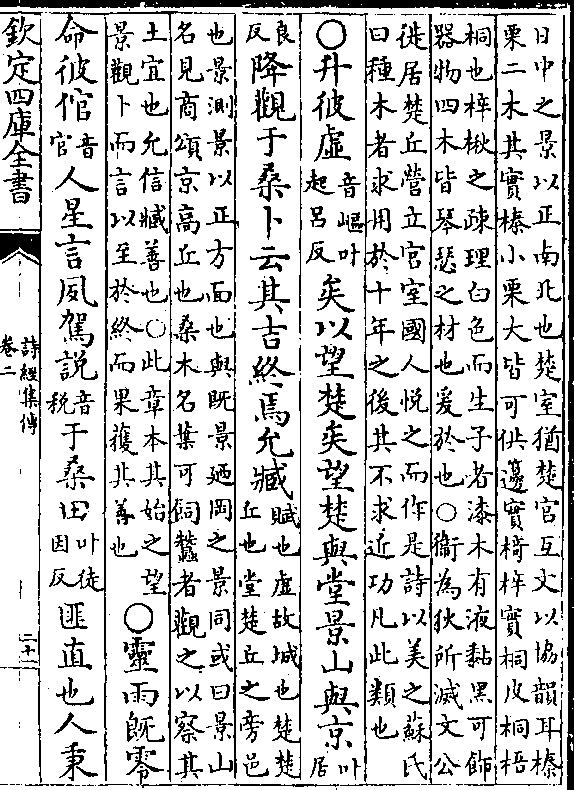 日中之景以正南北也楚室猶楚宮互文以協韻耳榛
栗二木其實榛小栗大皆可供籩實椅梓實桐皮桐梧
桐也梓楸之疎理白色而生子者漆木有液黏黑可飾
器物四木皆琴瑟之材也爰於也○衞為狄所滅文公
徙居楚丘營立宮室國人悅之而作是詩以美之蘇氏
曰種木者求用於十年之後其不求近功凡此類也
○升彼虛音嶇叶起呂反矣以望楚矣望楚與堂景山與京叶居
良反降觀于桑卜云其吉終焉允臧賦也虛故城也楚楚丘也堂楚丘之旁邑
也景測景以正方面也與既景廼岡之景同或曰景山
名見商頌京高丘也桑木名葉可飼蠶者觀之以察其
土宜也允信臧善也○此章本其始之望
景觀卜而言以至於終而果獲其善也○靈雨既零
命彼倌音官人星言夙駕説音税于桑田叶徒因反匪直也人秉
欽定四庫全書
詩經集傳
卷二
二十一